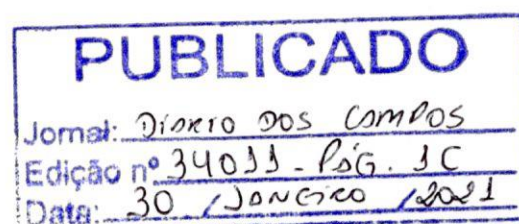 PUBLICADO
Jornal: DIÁRIO DOS CAMPOS
Edição nº 34011 - PÁG. 1C
Data: 30 / JANEIRO / 2021